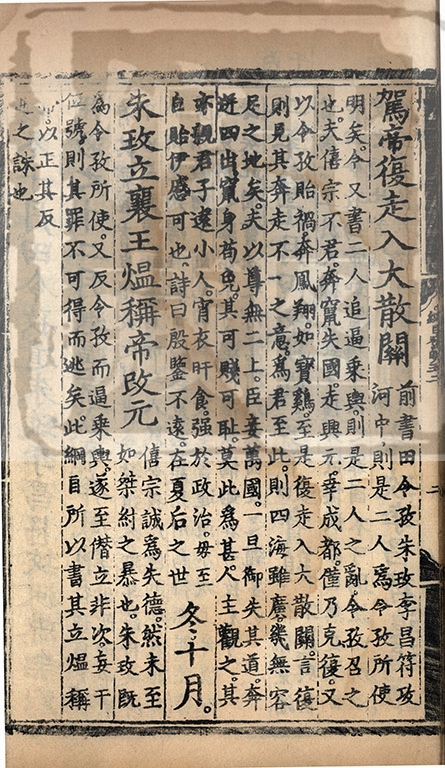 駕帝復走入大散關
前書田令孜朱玫李昌符攻
河中。則是二人爲令孜所使
明矣。今又書二人追逼乘輿。則是二人之亂。令孜召之
也。夫僖宗不君。奔竄失國。走興元。幸成都。僅乃克復。又
以令孜貽禍。奔鳳翔。如寶雞。至是復走入大散關。言復
則見其奔走不一之意。爲君至此。則四海雖廣。幾無容
足之地矣。夫以尊無二上。臣妾萬國。一旦御失其道。奔
迸四出。竄身苟免。其可賤可恥。莫此爲甚。人主觀之。其
亦親君子。遠小人。宵衣旰食。强於政治。毋至
自貽伊慼可也。詩曰。殷鑒不遠。在夏后之世
冬。十月。
朱玫立襄王熅稱帝改元
僖宗誠爲失德。然未至
如桀紂之暴也。朱玫既
爲令孜所使。又反令孜而逼乘輿。遂至僭立非次。妄干
位號。則其罪不可得而逃矣。此綱目所以書其立熅稱
以正其反
之誅也